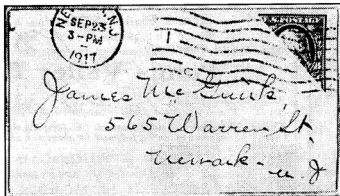 N.J.
SEP 23
3-PM
1917
James Mc Gurk,
565 Warren St.
Newark-
N. J.